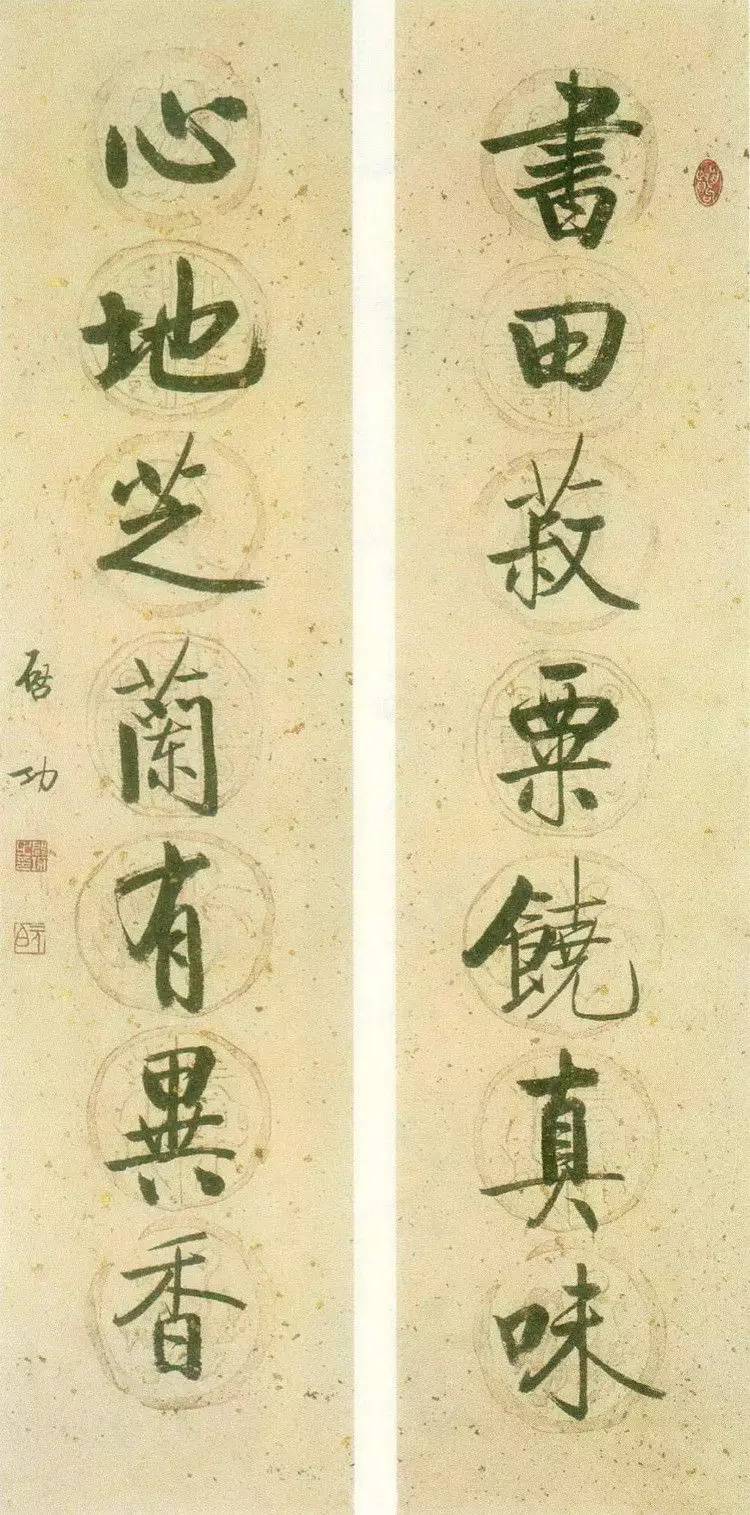 書田菽粟饒真味
心地芝蘭有異香
啓功
元白